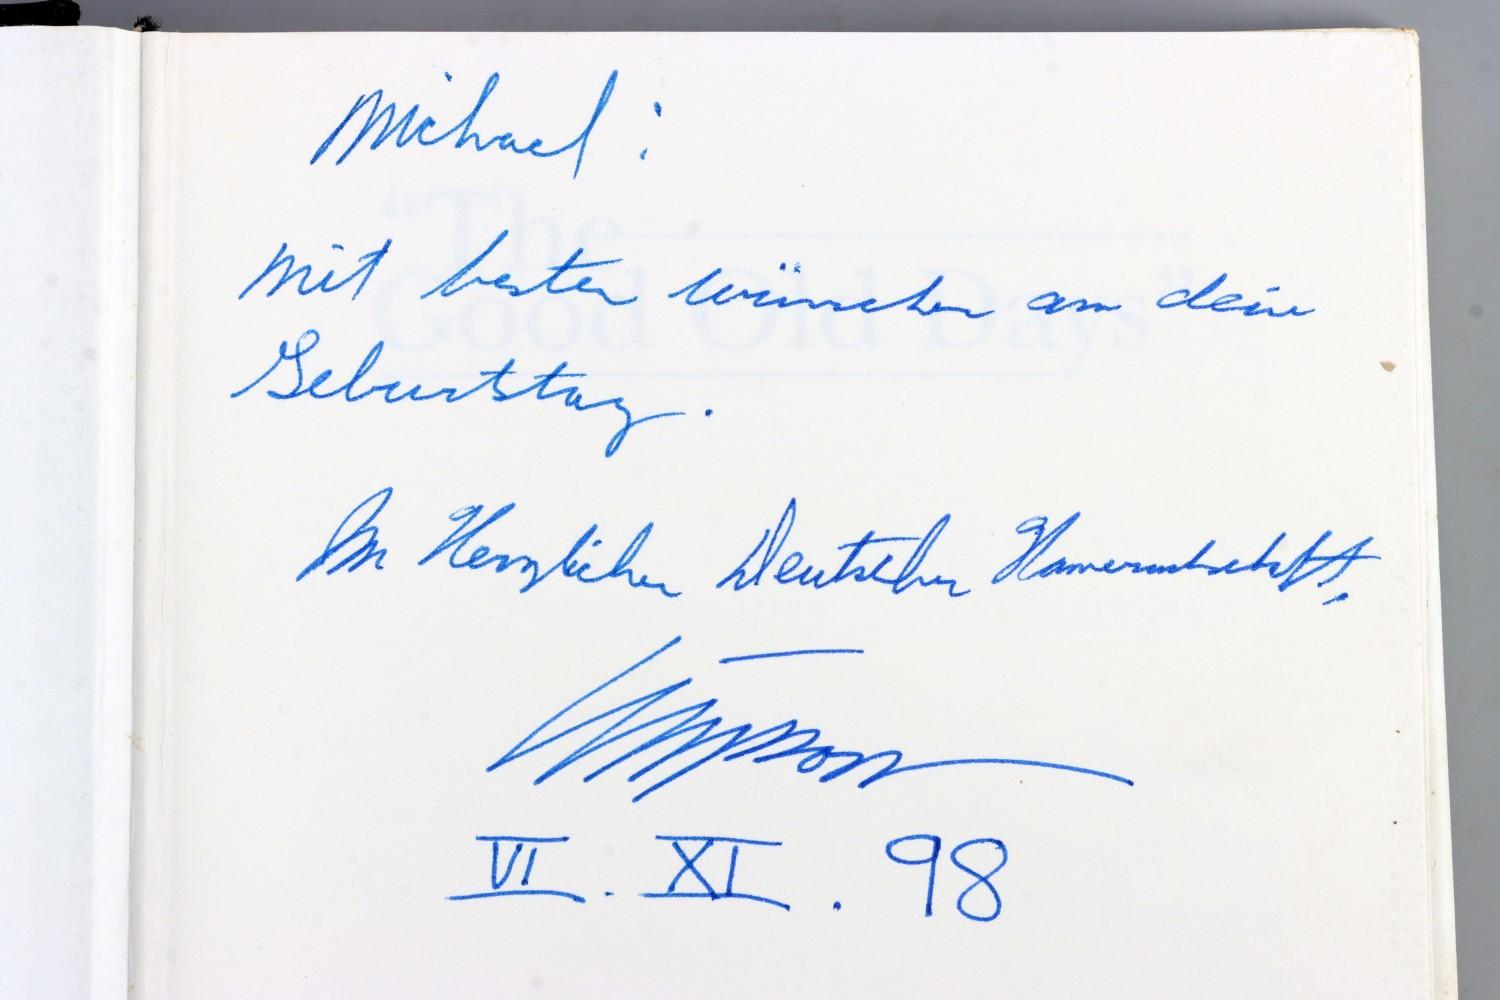 Michael:
"The
Good Old Days"
Mit besten wünschen am dein
Geburtstag.
In Herzlicher Deutscher Kameradschaft,
VI. XI. 98